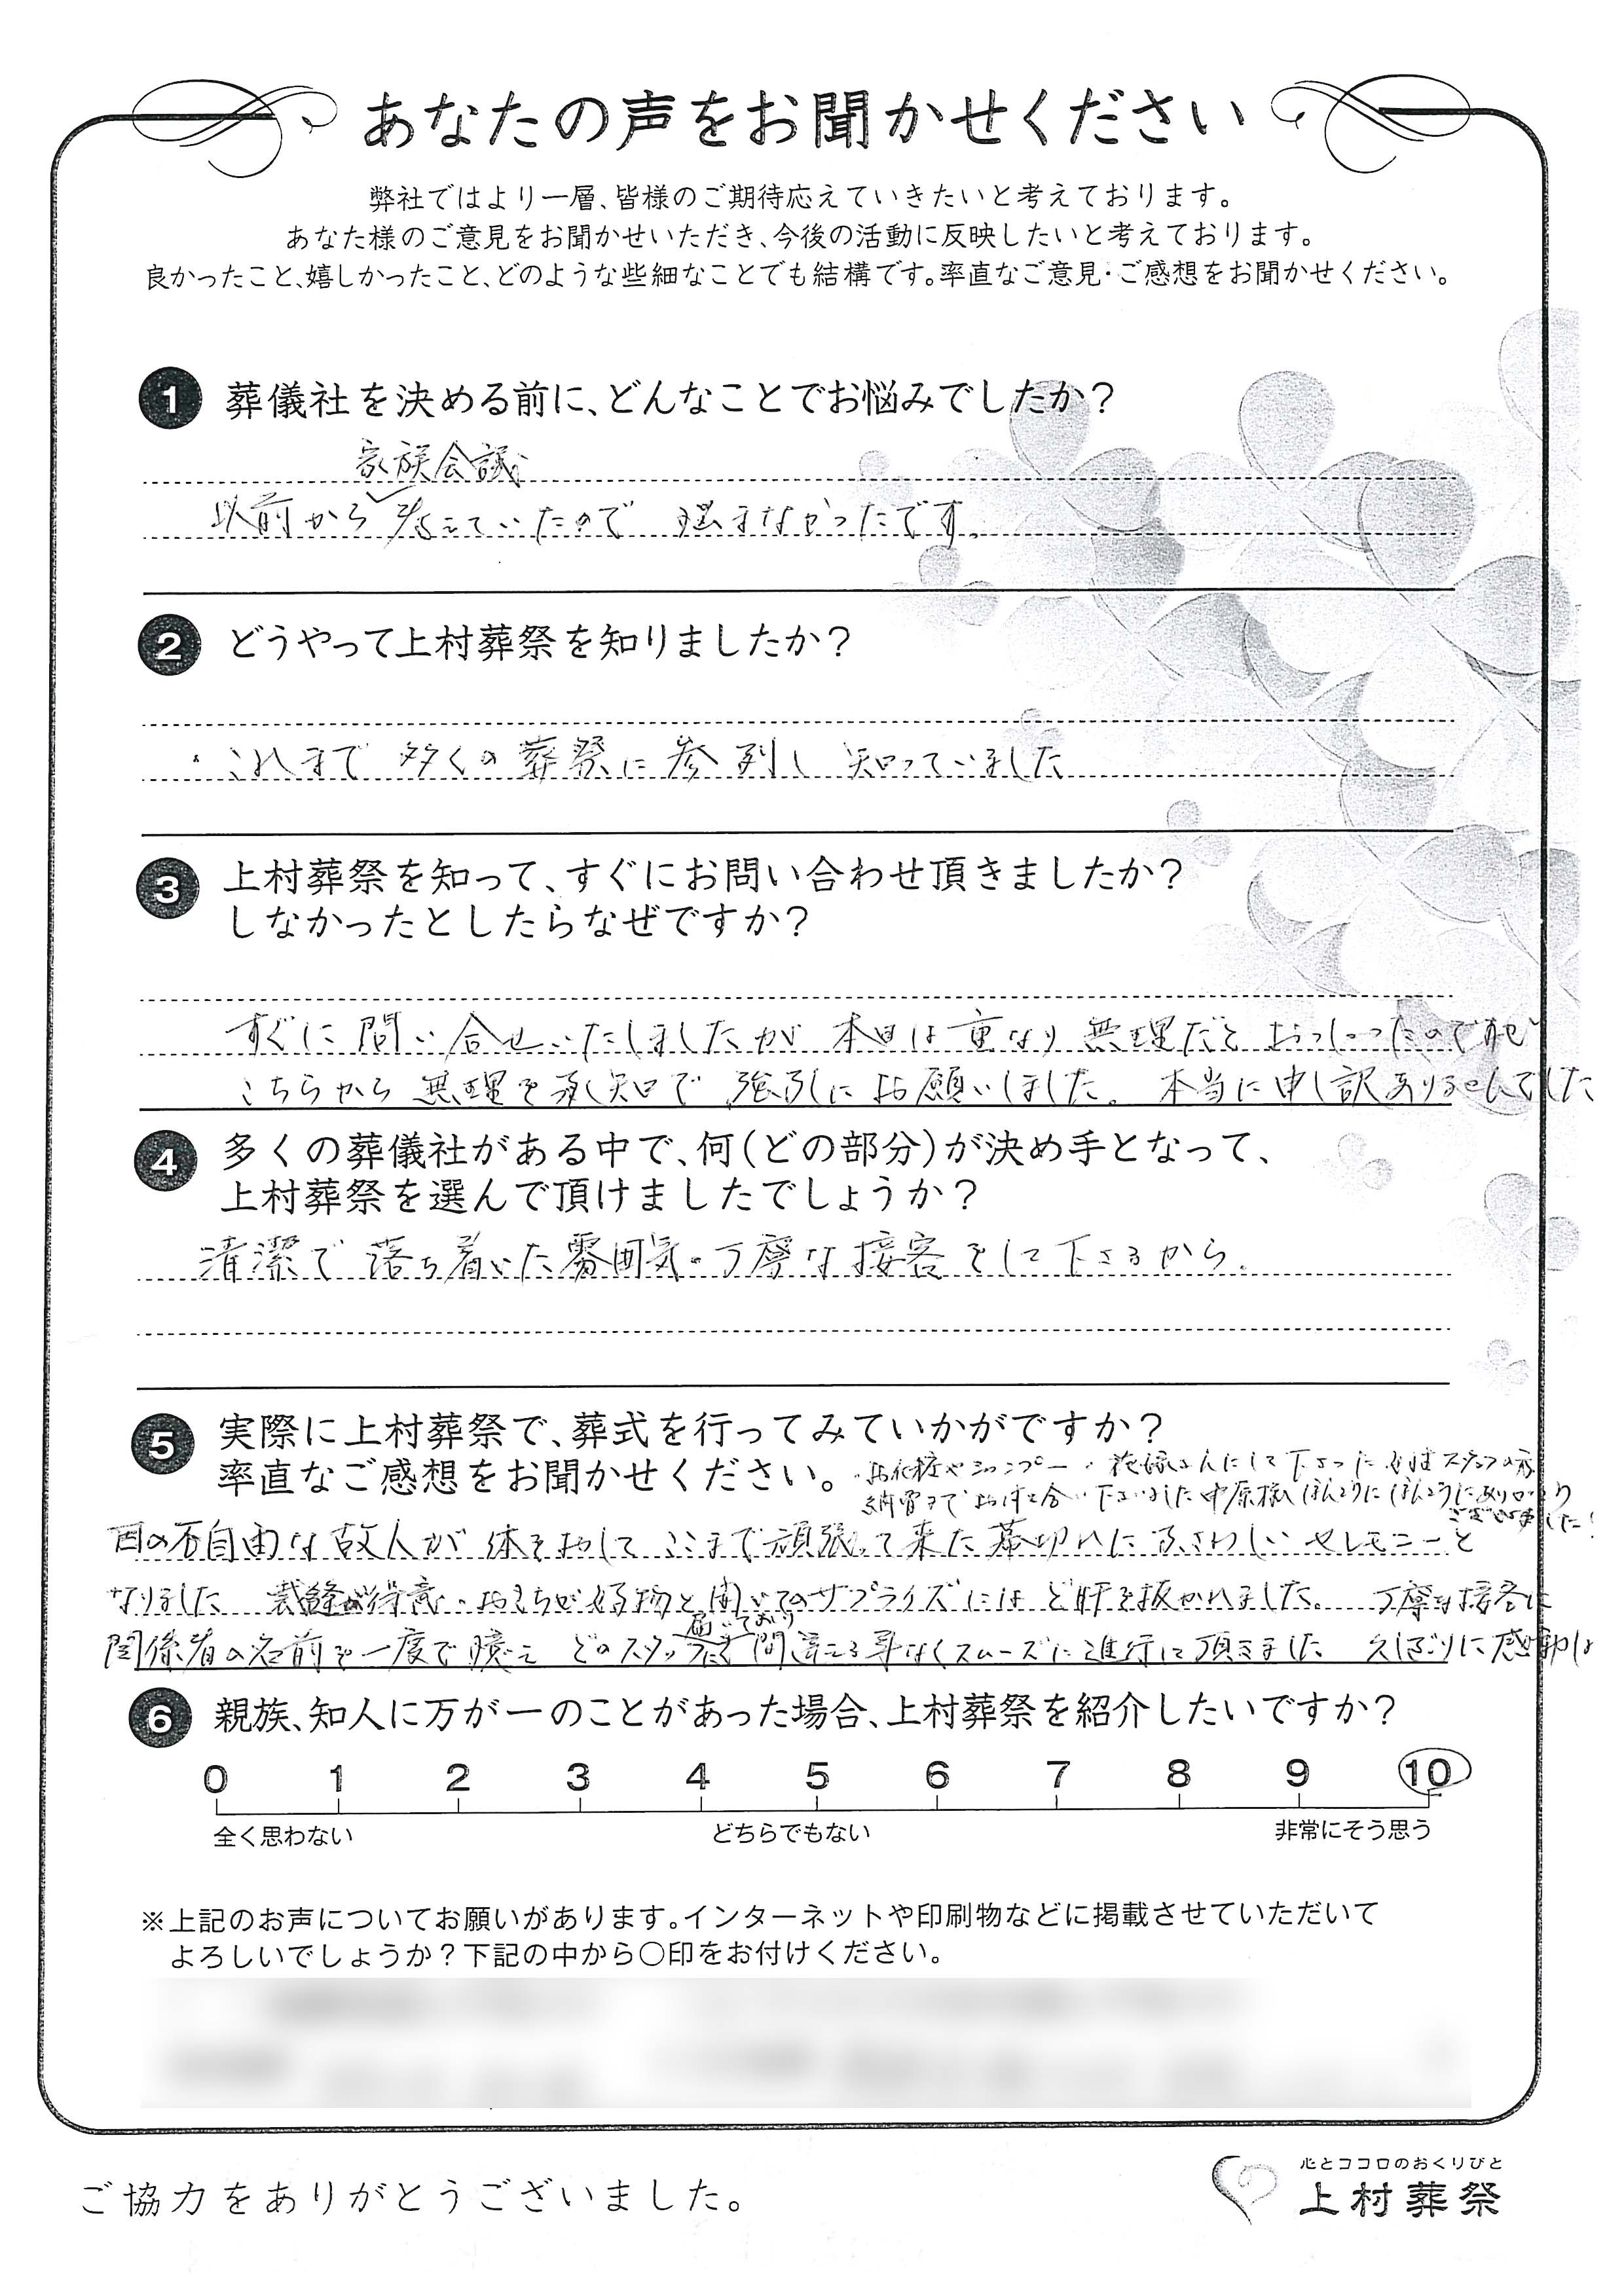 あなたの声をお聞かせください
弊社ではより一層、皆様のご期待応えていきたいと考えております。
あなた様のご意見をお聞かせいただき、今後の活動に反映したいと考えております。
良かったこと、嬉しかったこと、どのような些細なことでも結構です。率直なご意見・ご感想をお聞かせください。
1 葬儀社を決める前に、どんなことでお悩みでしたか?
家族会議
以前から考えていたので 悩まなかったです。
2 どうやって上村葬祭を知りましたか?
・これまで 多くの葬祭に参列し 知っていました
3 上村葬祭を知って、すぐにお問い合わせ頂きましたか?
しなかったとしたらなぜですか?
すぐに問い合せいたしましたが 本日は重なり 無理だと おっしゃったのですが
こちらから 無理を承知で 強引にお願いしました。 本当に申し訳ありませんでした
4 多くの葬儀社がある中で、何(どの部分)が決め手となって、
上村葬祭を選んで頂けましたでしょうか?
清潔で 落ち着いた雰囲気・丁寧な接客をして下さるから。
5 実際に上村葬祭で、葬式を行ってみていかがですか?
率直なご感想をお聞かせください。
・お化粧やシャンプー・花嫁さんにして下さった スタッフの
納骨まで お付き合い下さいました 中原様 ほんとうにほんとうにありがとう
ございました!
目の不自由な故人が 体を ここまで頑張って来た幕切れにふさわしいセレモニーと
なりました 裁縫が得意・おもちが好物と聞いてのサプライズには ど肝を抜かれました。 丁寧な接客は
届いており
関係者の名前を一度で憶え どのスタッフも 間違える事なくスムーズに進行して頂きました 久しぶりに感動
6 親族、知人に万が一のことがあった場合、上村葬祭を紹介したいですか?
0 1 2 3 4 5 6 7 8 9 10
全く思わない どちらでもない 非常にそう思う
※上記のお声についてお願いがあります。インターネットや印刷物などに掲載させていただいて
よろしいでしょうか?下記の中から○印をお付けください。
ご協力をありがとうございました。
心とココロのおくりびと
上村葬祭